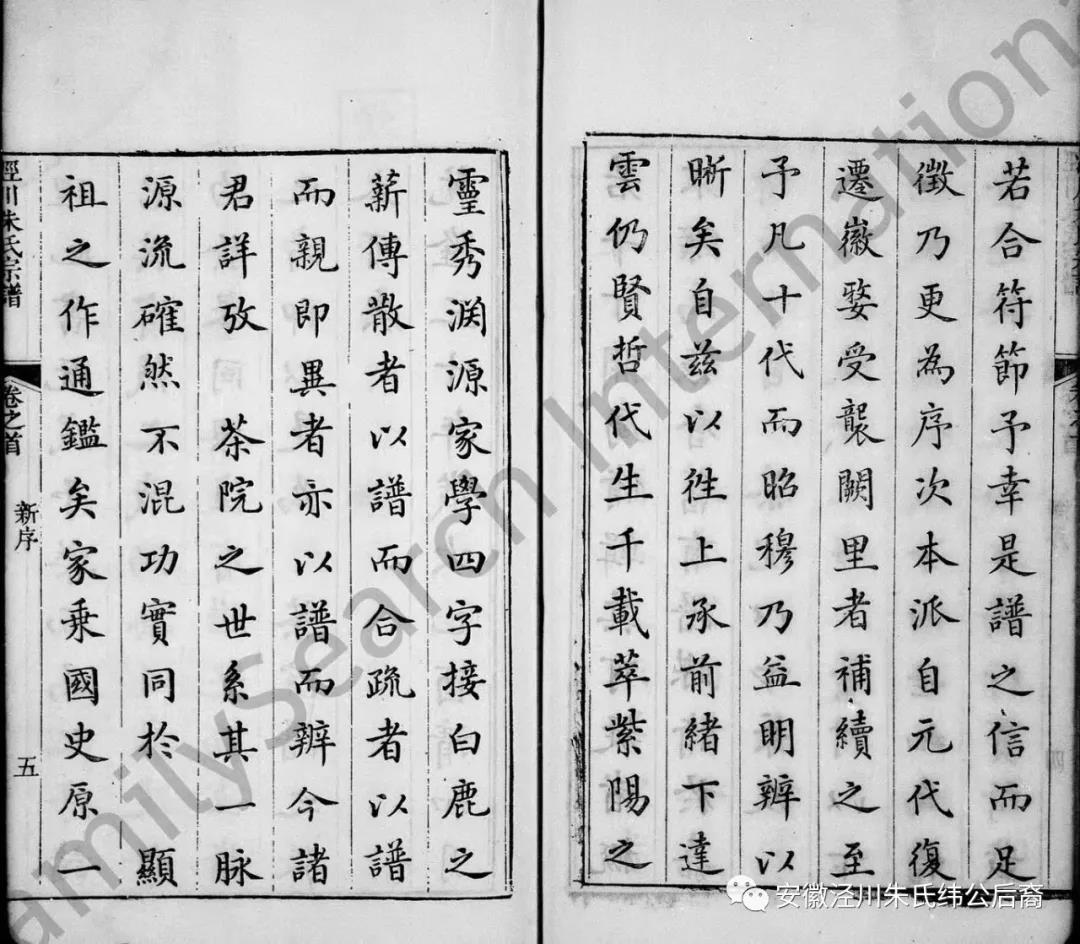 若合符節予幸是譜之信而足
徵乃更為序次本派自元代復
遷徽婺受襲闕里者補續之至
予凡十代而昭穆乃益明辨以
晰矣自茲以徃上承前緒下達
雲仍賢哲代生千載萃紫陽之
靈秀渕源家學四字接白鹿之
薪傳散者以譜而合疏者以譜
而親即異者亦以譜而辨今諸
君詳攷 茶院之世系其一脉
源流確然不混功實同於 顯
祖之作通鑑矣家乗國史原一
涇川朱氏宗譜
卷之首
新序
五
FamilySearch International
安徽泾川朱氏纬公后裔